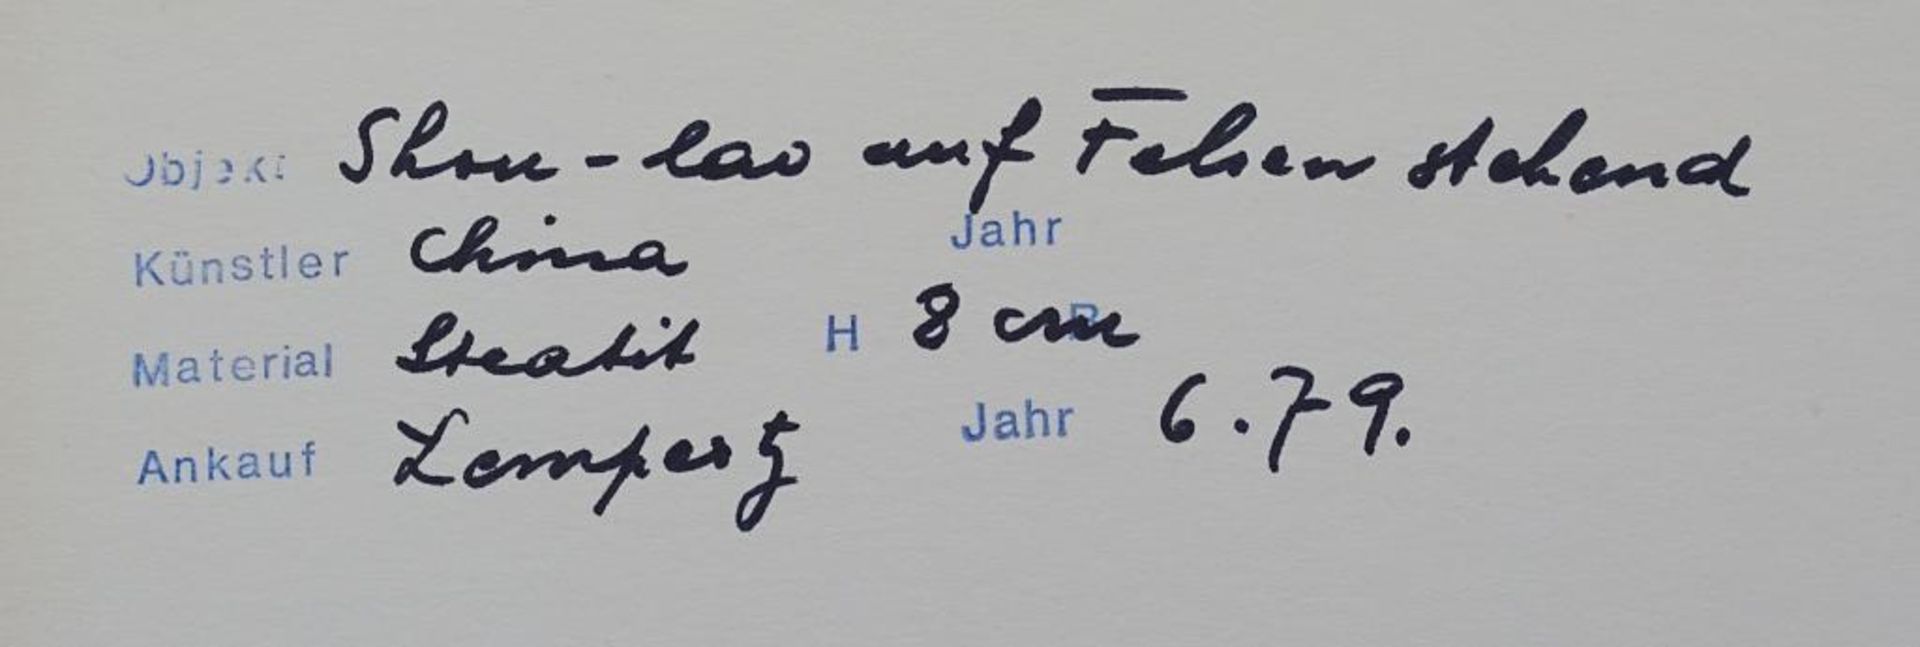 Objekt Shou-lao auf Felsen stehend
Künstler China Jahr
Material Steatit H 8 cm B
Ankauf Lempertz Jahr 6.79.